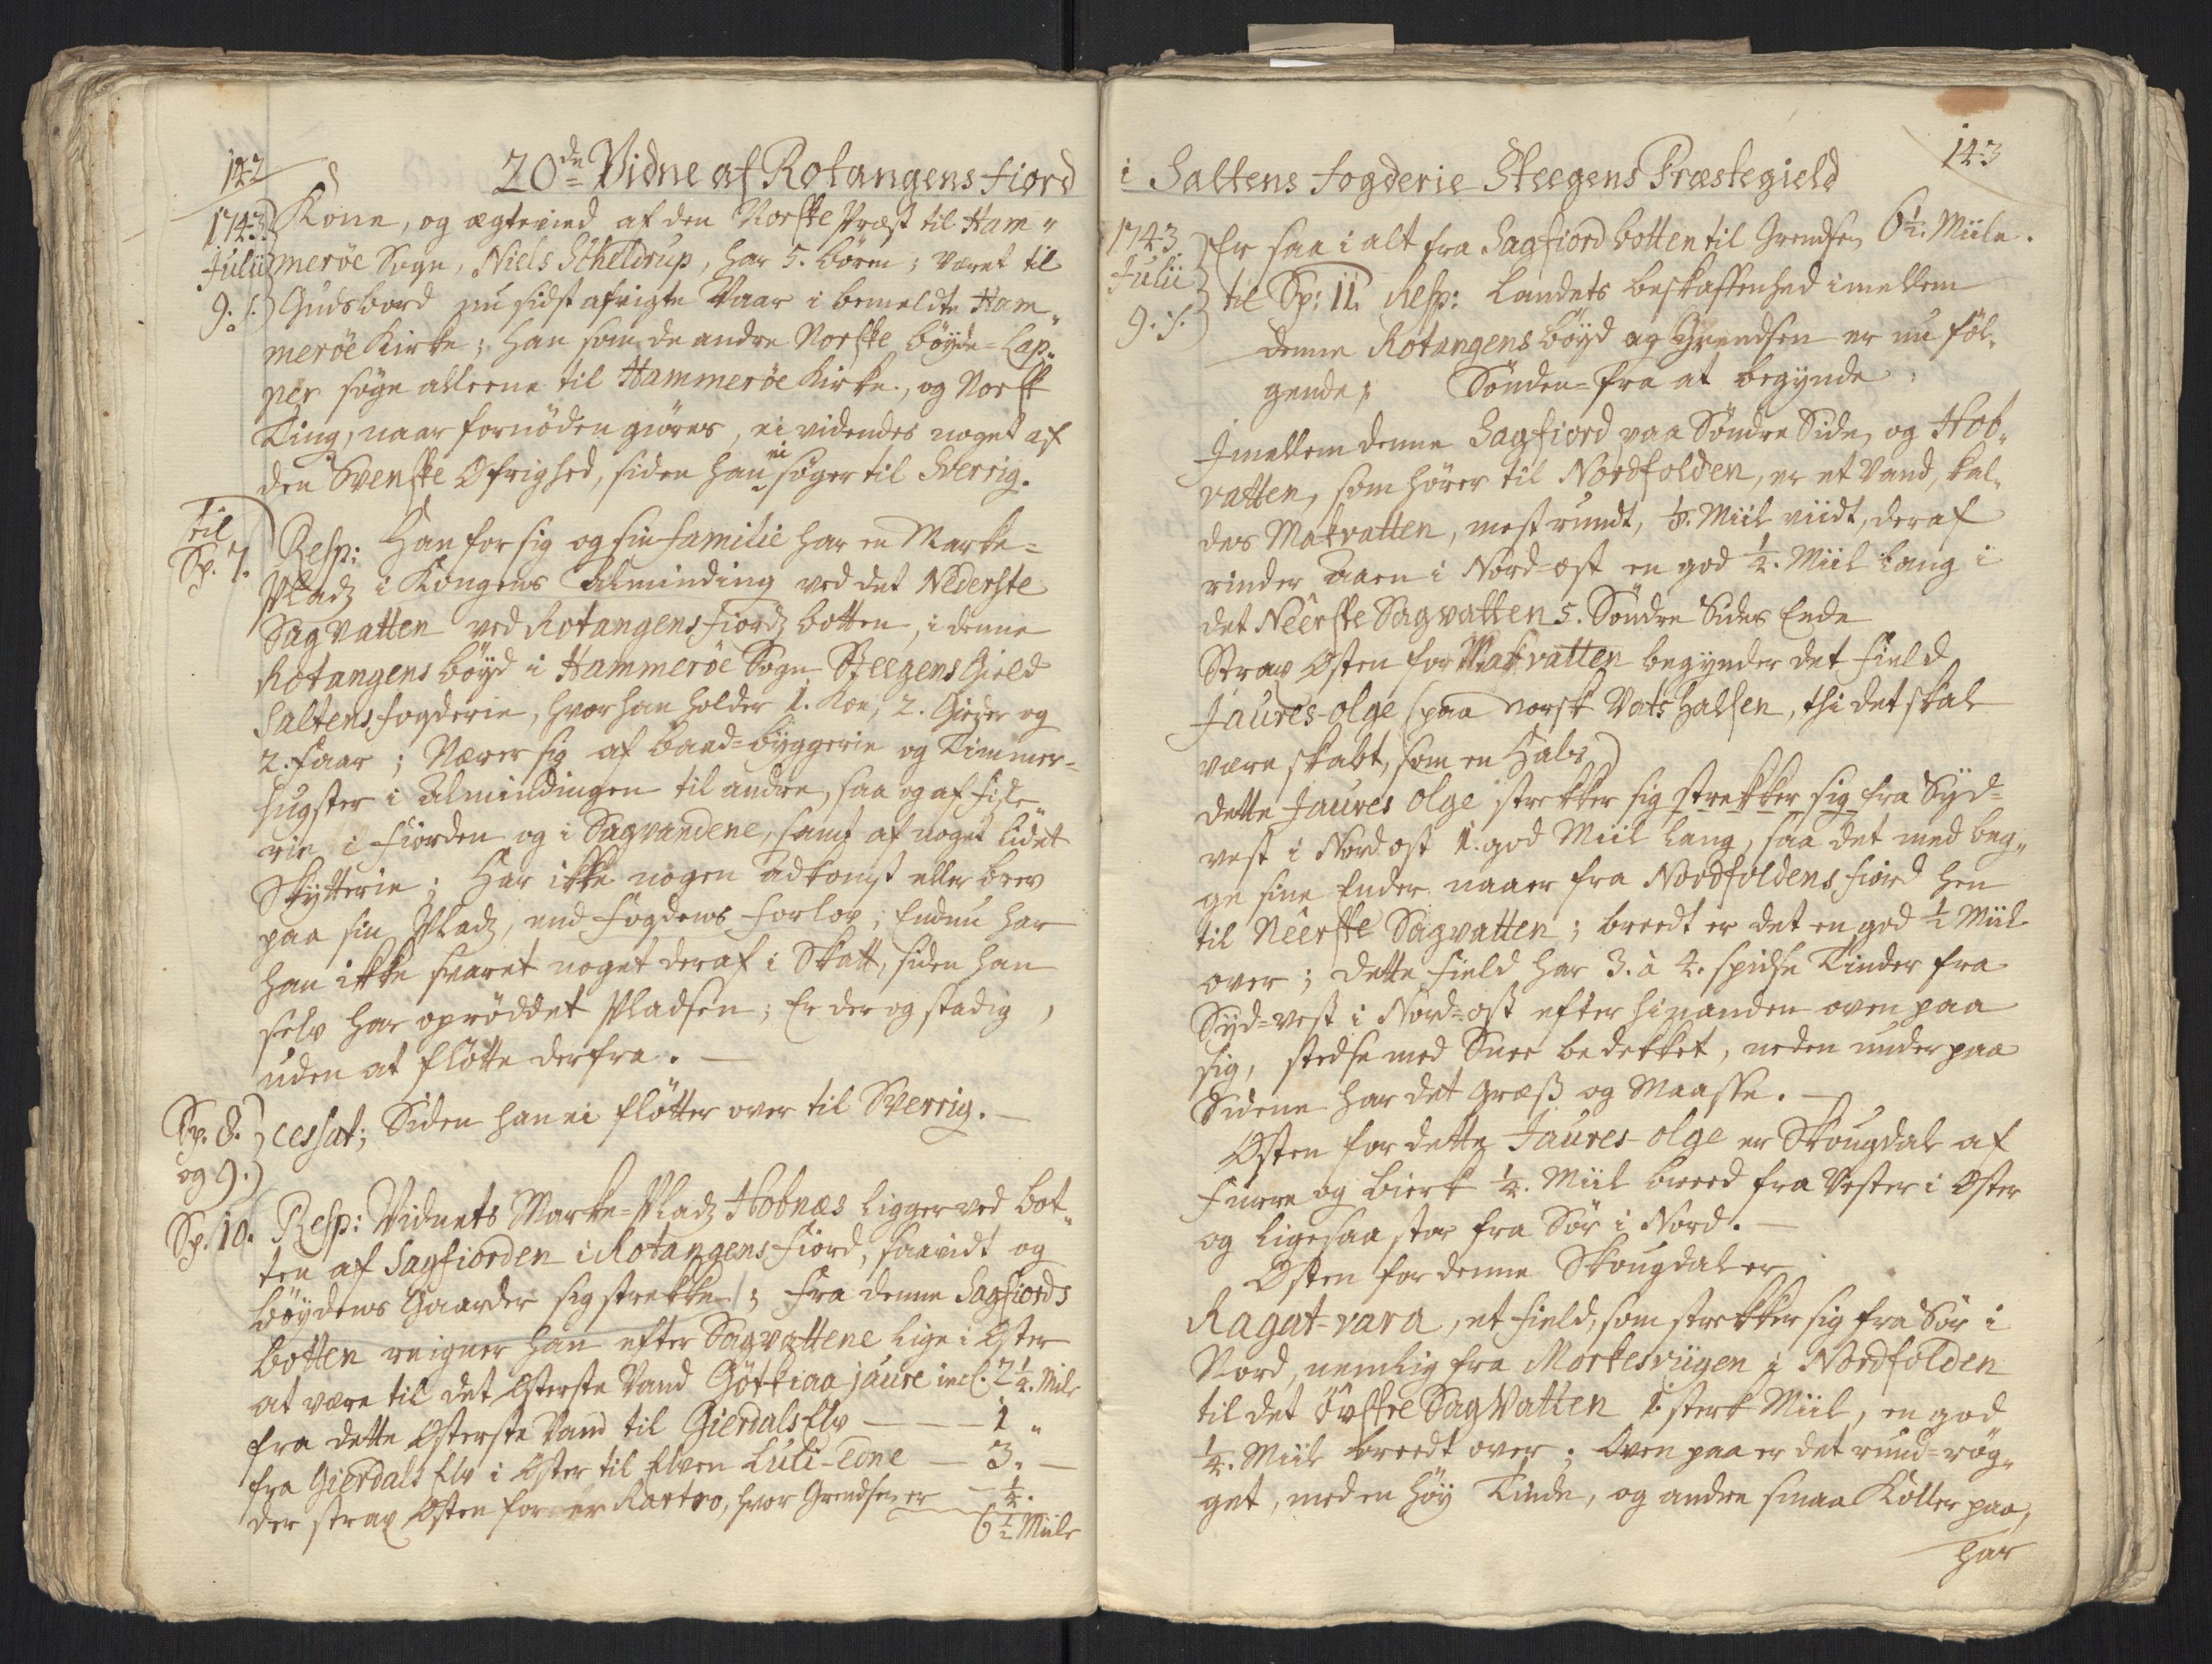 142
20de Vidne af Rotangens fiord
1743
Julii
9. s.
Kone, og ægtevied af den Norske Præst til Ham„
merøe Sogn, Niels Scheldrup, har 5. børn; været til
Gudsbord nu sidst afvigte Vaar i bemeldte Ham„
merøe Kirke; han som de andre Norske böyde-Lap„
per søge alleene til Hammerøe Kirke, og Norsk
Ting, naar fornöden giöres, ei videndes noget af
den Svenske Øfrighed, siden han ei søger til Sverrig.
til
Sp. 7.
Resp: Han for sig og sin familie har en Marke-
Pladz i Kongens Alminding ved det Nederste
Sagvatten ved Rotangens fiordz botten, i denne
Rotangens böyd i Hammerøe Sogn Steegens Gield
Saltens fogderie, hvor han holder 1. Koe, 2. Gieder og
2. faar; Nærer sig af baad-byggerie og Timmer-
hugster i Almindingen til andre, saa og af fiske„
rie i fiorden og i Sagvandene, samt af noget lidet
Skytterie; Har ikke nogen Adkomst eller brev
paa sin Pladz, end fogdens forlov; Endnu har
han ikke svaret noget deraf i Skatt, siden han
selv har oprøddet Pladsen; Er der og stadig,
uden at flötte derfra. —
Sp. 8.
og 9.
cessat; Siden han ei flötter over til Sverrig. —
Sp. 10.
Resp: Vidnets Marke-Pladz Hobnæs ligger ved bot„
ten af Sagfiorden i Rotangens fiord, saavidt og
böydens Gaarder sig strekke; fra denne Sagfiords
botten reigner han efter Sagvattene lige i Øster
at være til det Østerste Vand Götkiaa-jaure incl. 2 1/4. Mile
fra dette Østerste Vand til Gierdals Elv — — — 1 „
fra Gierdals Elv i Øster til Elven Luli-edne — 3. —
der strax Østen for er Kartvo, hvor Grendsen er — 1/4.
6 1/2 Mile
i Saltens fogderie Steegens Præstegield
143
1743
Julii
9. s.
Er saa i alt fra Sagfiord botten til Grendsen 6 1/2. Miile.
til Sp: 11. Resp: Landets beskaffenhed imellem
denne Rotangens böyd og Grendsen er nu föl„
gende; Sönden-fra at begynde:
Imellem denne Sagfiord paa Söndre Side, og Hob„
vatten, som hörer til Nordfolden, er et Vand, kal„
des Makvatten, mest rundt, 1/8. Miil viidt, deraf
rinder Aaen i Nord-ost en god 1/4. Miil lang i
det Neêrste Sagvattens Söndre Sides Ende
Strax Østen for Makvatten begynder det field
Jaures-olge (paa norsk Vats halsen, thi det skal
være skabt, som en Hals)
dette Jaures olge strekker sig strekker sig fra Syd-
vest i Nordost 1. god Miil lang, saa det med beg„
ge sine Ender naaer fra Nordfoldens fiord hen
til Neêrste Sagvatten; breedt er det en god 1/2 Miil
over; dette field har 3. à 4. spidse Tinder fra
Syd-vest i Nord-ost efter hinanden oven paa
sig, stedse med Snee bedekket, neden under paa
Siderne har det Græs og Maasse. —
Østen for dette Jaures-olge er Skougdal af
Furre og bierk 1/4. Miil breed fra Vester i Øster
og ligesaa stor fra Sör i Nord. —
Østen for denne Skougdal er
Ragat-vara, et field, som strekker sig fra Sör i
Nord, nemlig fra Morkesviigen i Nordfolden
til det öv̂stre SagVatten 1. sterk Miil, en god
1/4. Miil breedt over; Oven paa er det rund-røg„
get, med en höy Tinde, og andre smaa Koller paa,
har